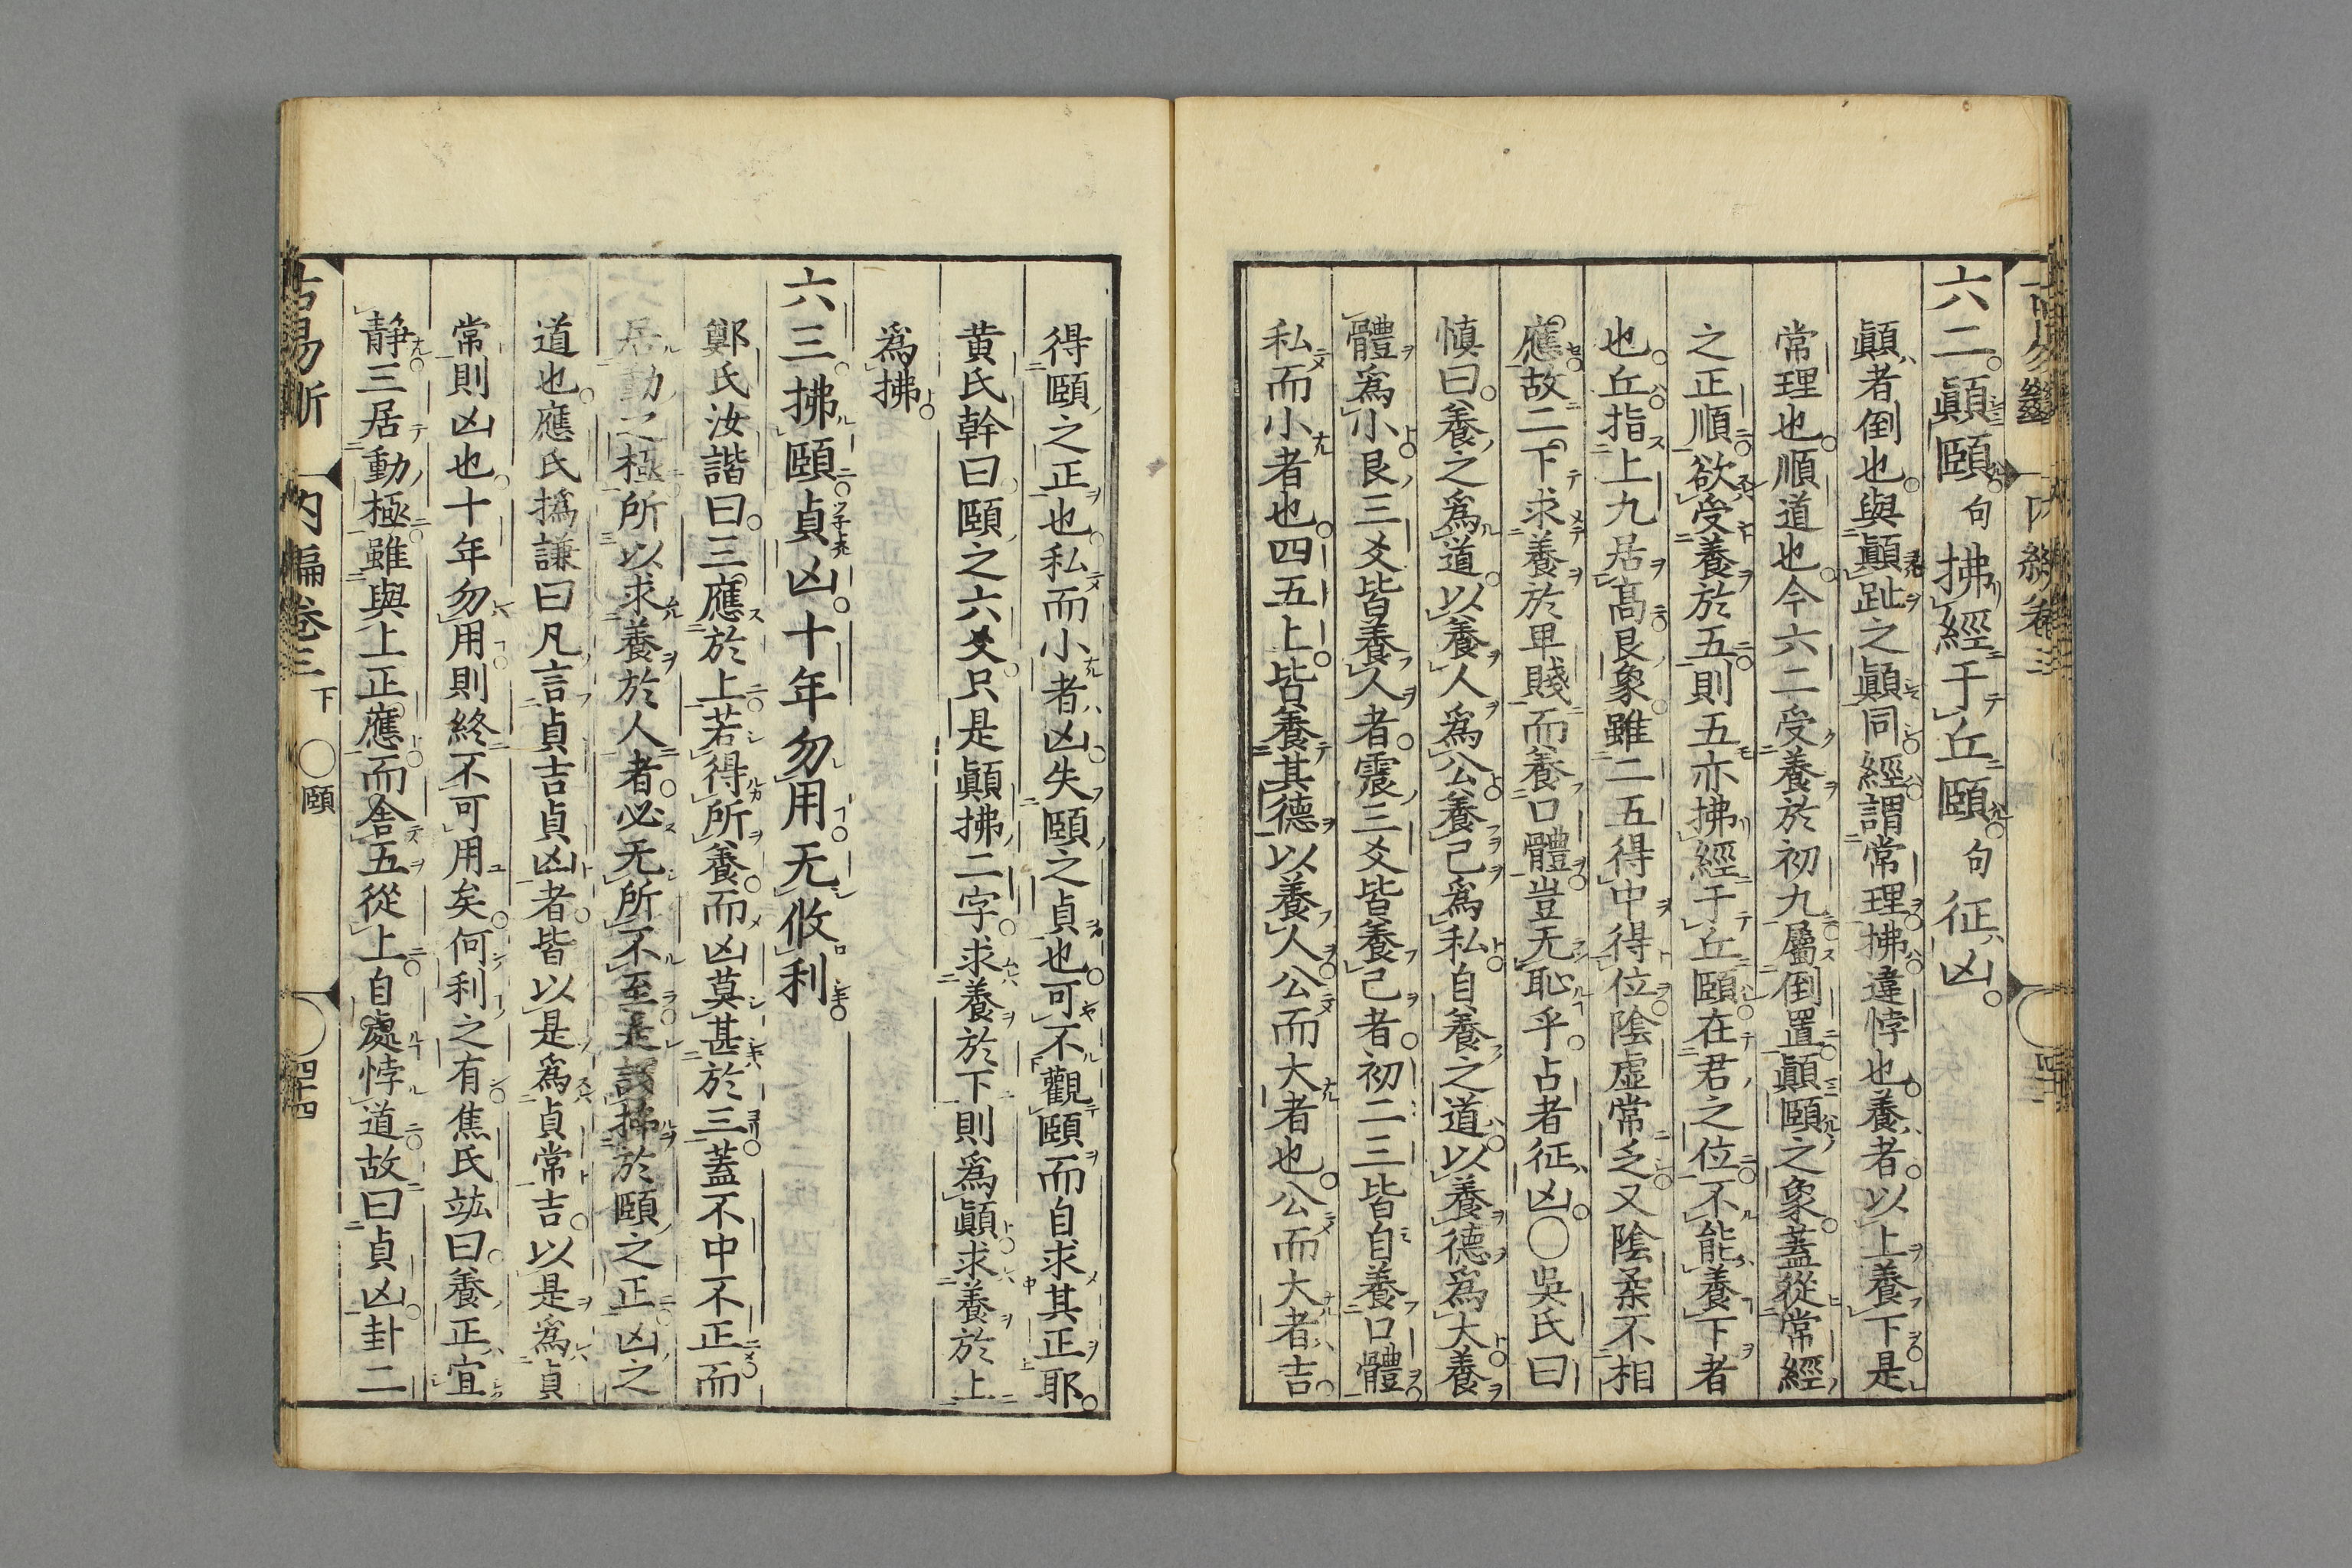 六二顚頤句拂經于丘頤句征凶
顚者倒也與顚趾之顚同經謂常理拂違悖也養者以上養下是
常理也順道也今六二受養於初九屬倒置顚頤之象蓋從常經
之正順欲受養於五則五亦拂經于丘頤在君之位不能養下者
也丘指上九居高艮象雖二五得中得位陰虛常乏又陰柔不相
應故二下求養於卑賤而養口體豈无恥乎占者征凶○吳氏曰
愼曰養之爲道以養人爲公養己爲私自養之道以養德爲大養
體爲小艮三爻皆養人者震三爻皆養己者初二三皆自養口體
私而小者也四五上皆養其德以養人公而大者也公而大者吉
得頤之正也私而小者凶失頤之貞也可不觀頤而自求其正耶
黄氏幹曰頤之六爻只是顚拂二字求養於下則爲顚求養於上
爲拂
六三拂頤貞凶十年勿用无攸利
鄭氏汝諧曰三應於上若得所養而凶莫甚於三蓋不中不正而
居動之極所以求養於人者必无所不至是謂拂於頤之正凶之
道也應氏撝謙曰凡言貞吉貞凶者皆以是爲貞常吉以是爲貞
常則凶也十年勿用則終不可用矣何利之有焦氏竑曰養正宜
靜三居動極雖與上正應而舍五從上自處悖道故曰貞凶卦二
古易斷 内編卷三下 ○頤 ○四十四